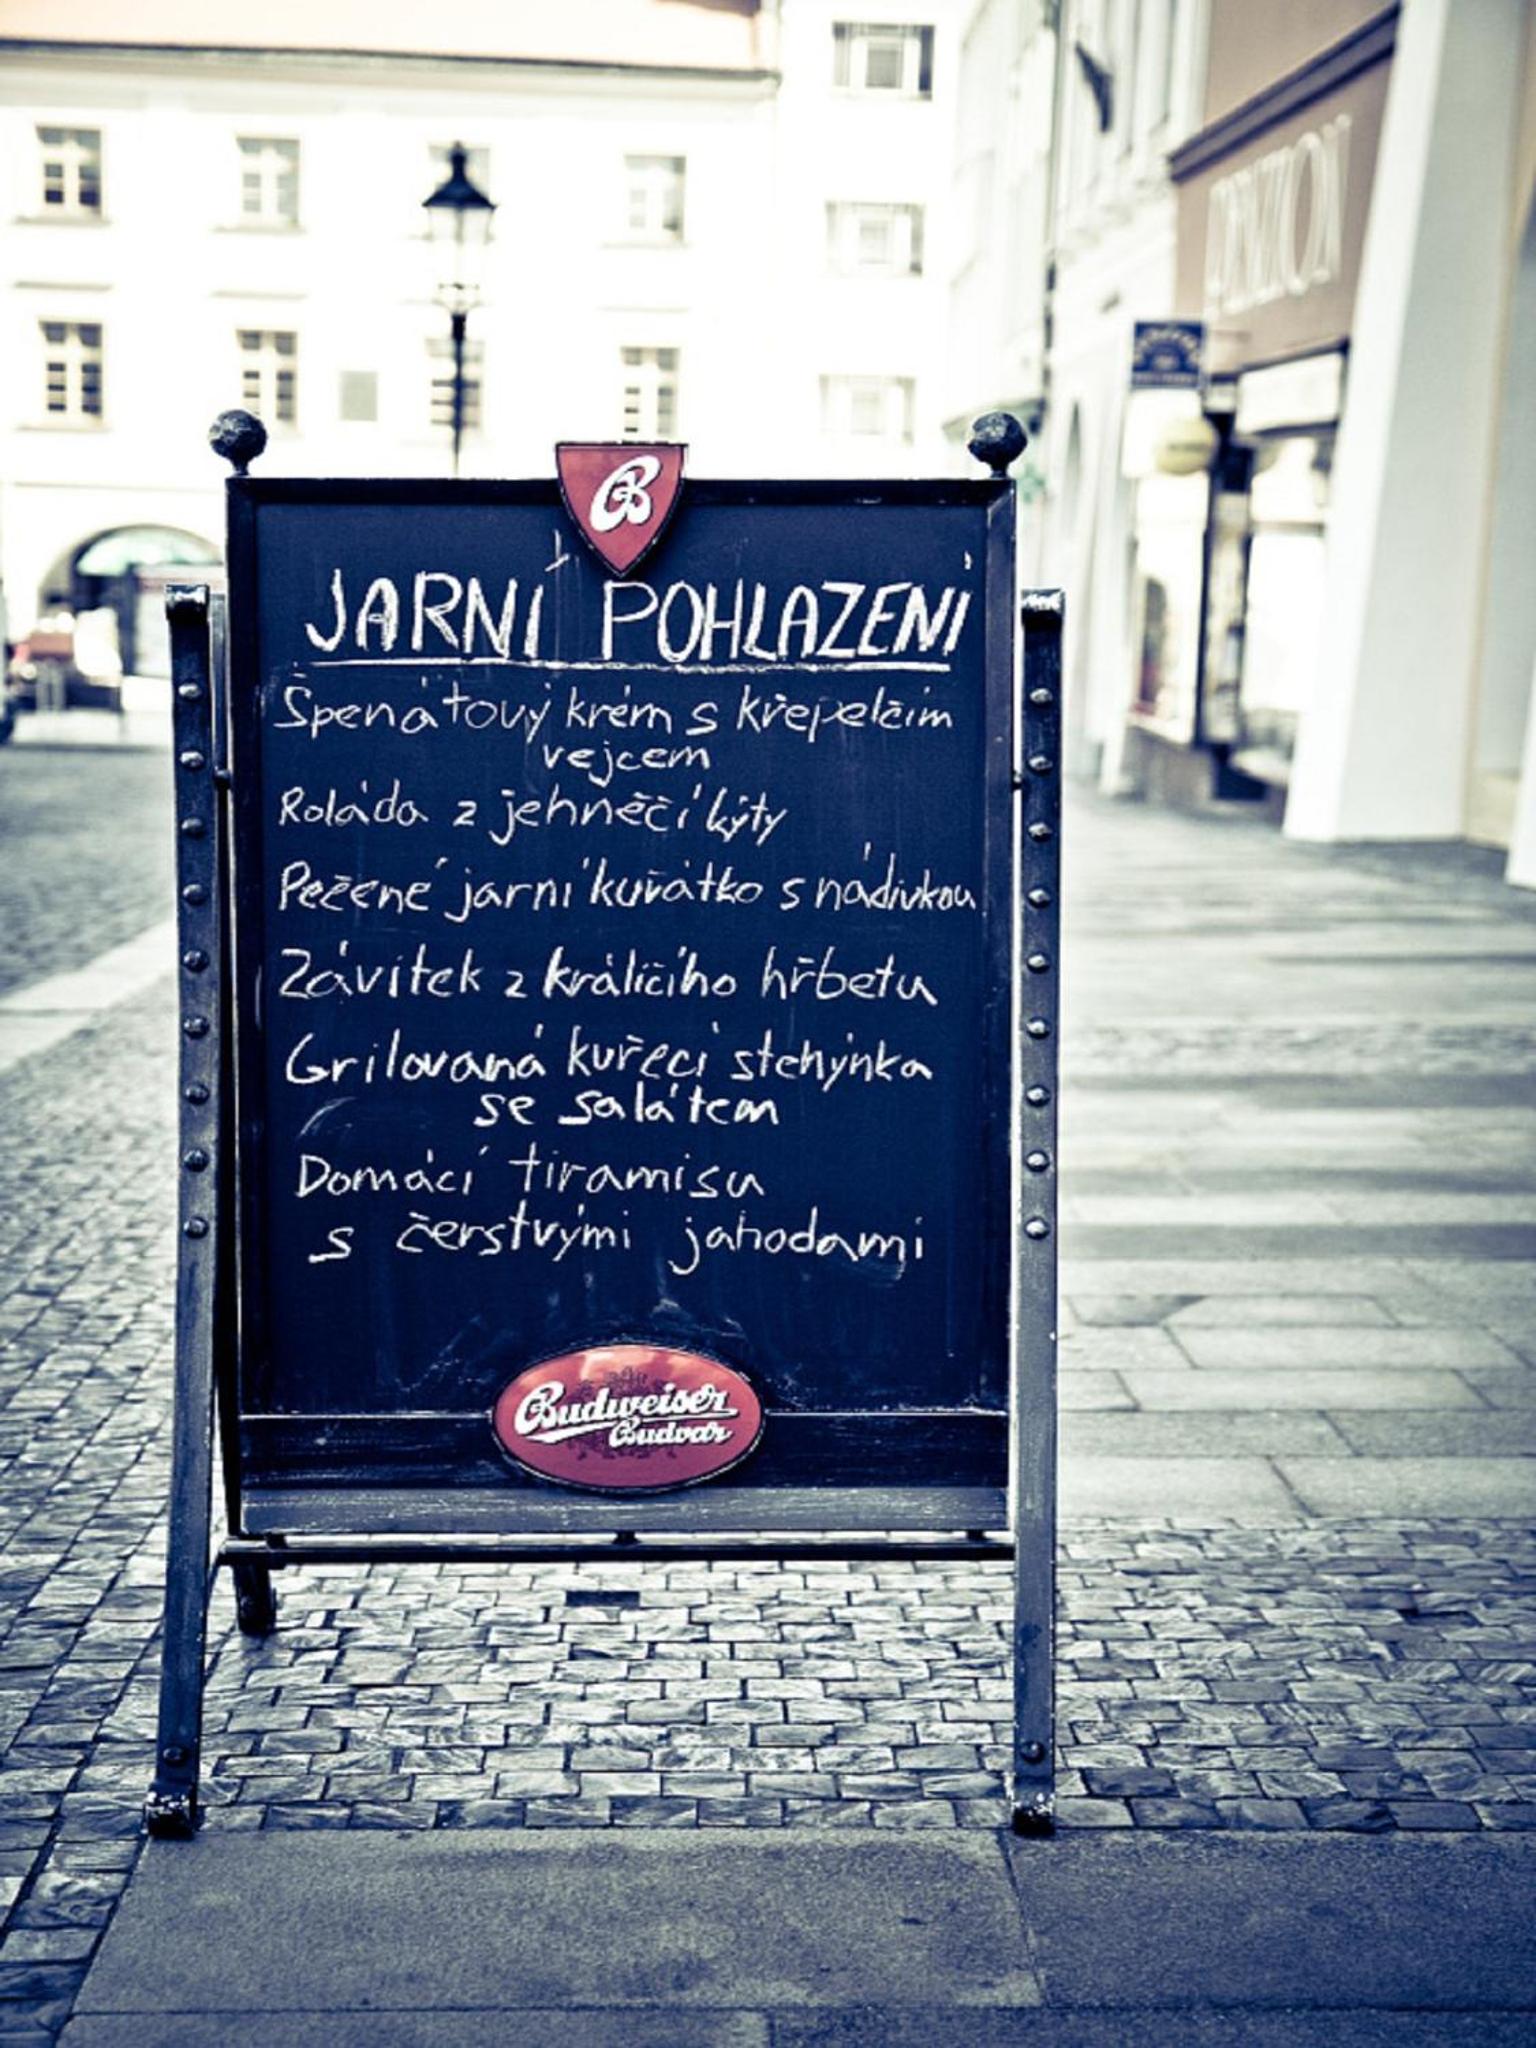 PENZION
B
JARNÍ POHLAZENÍ
Špenátový krém s křepelčím
vejcem
Roláda z jehněčí kýty
Pečené jarní kuřátko s nádivkou
Závitek z králičího hřbetu
Grilovaná kuřecí stehýnka
se salátem
Domácí tiramisu
s čerstvými jahodami
Budweiser
Budvar